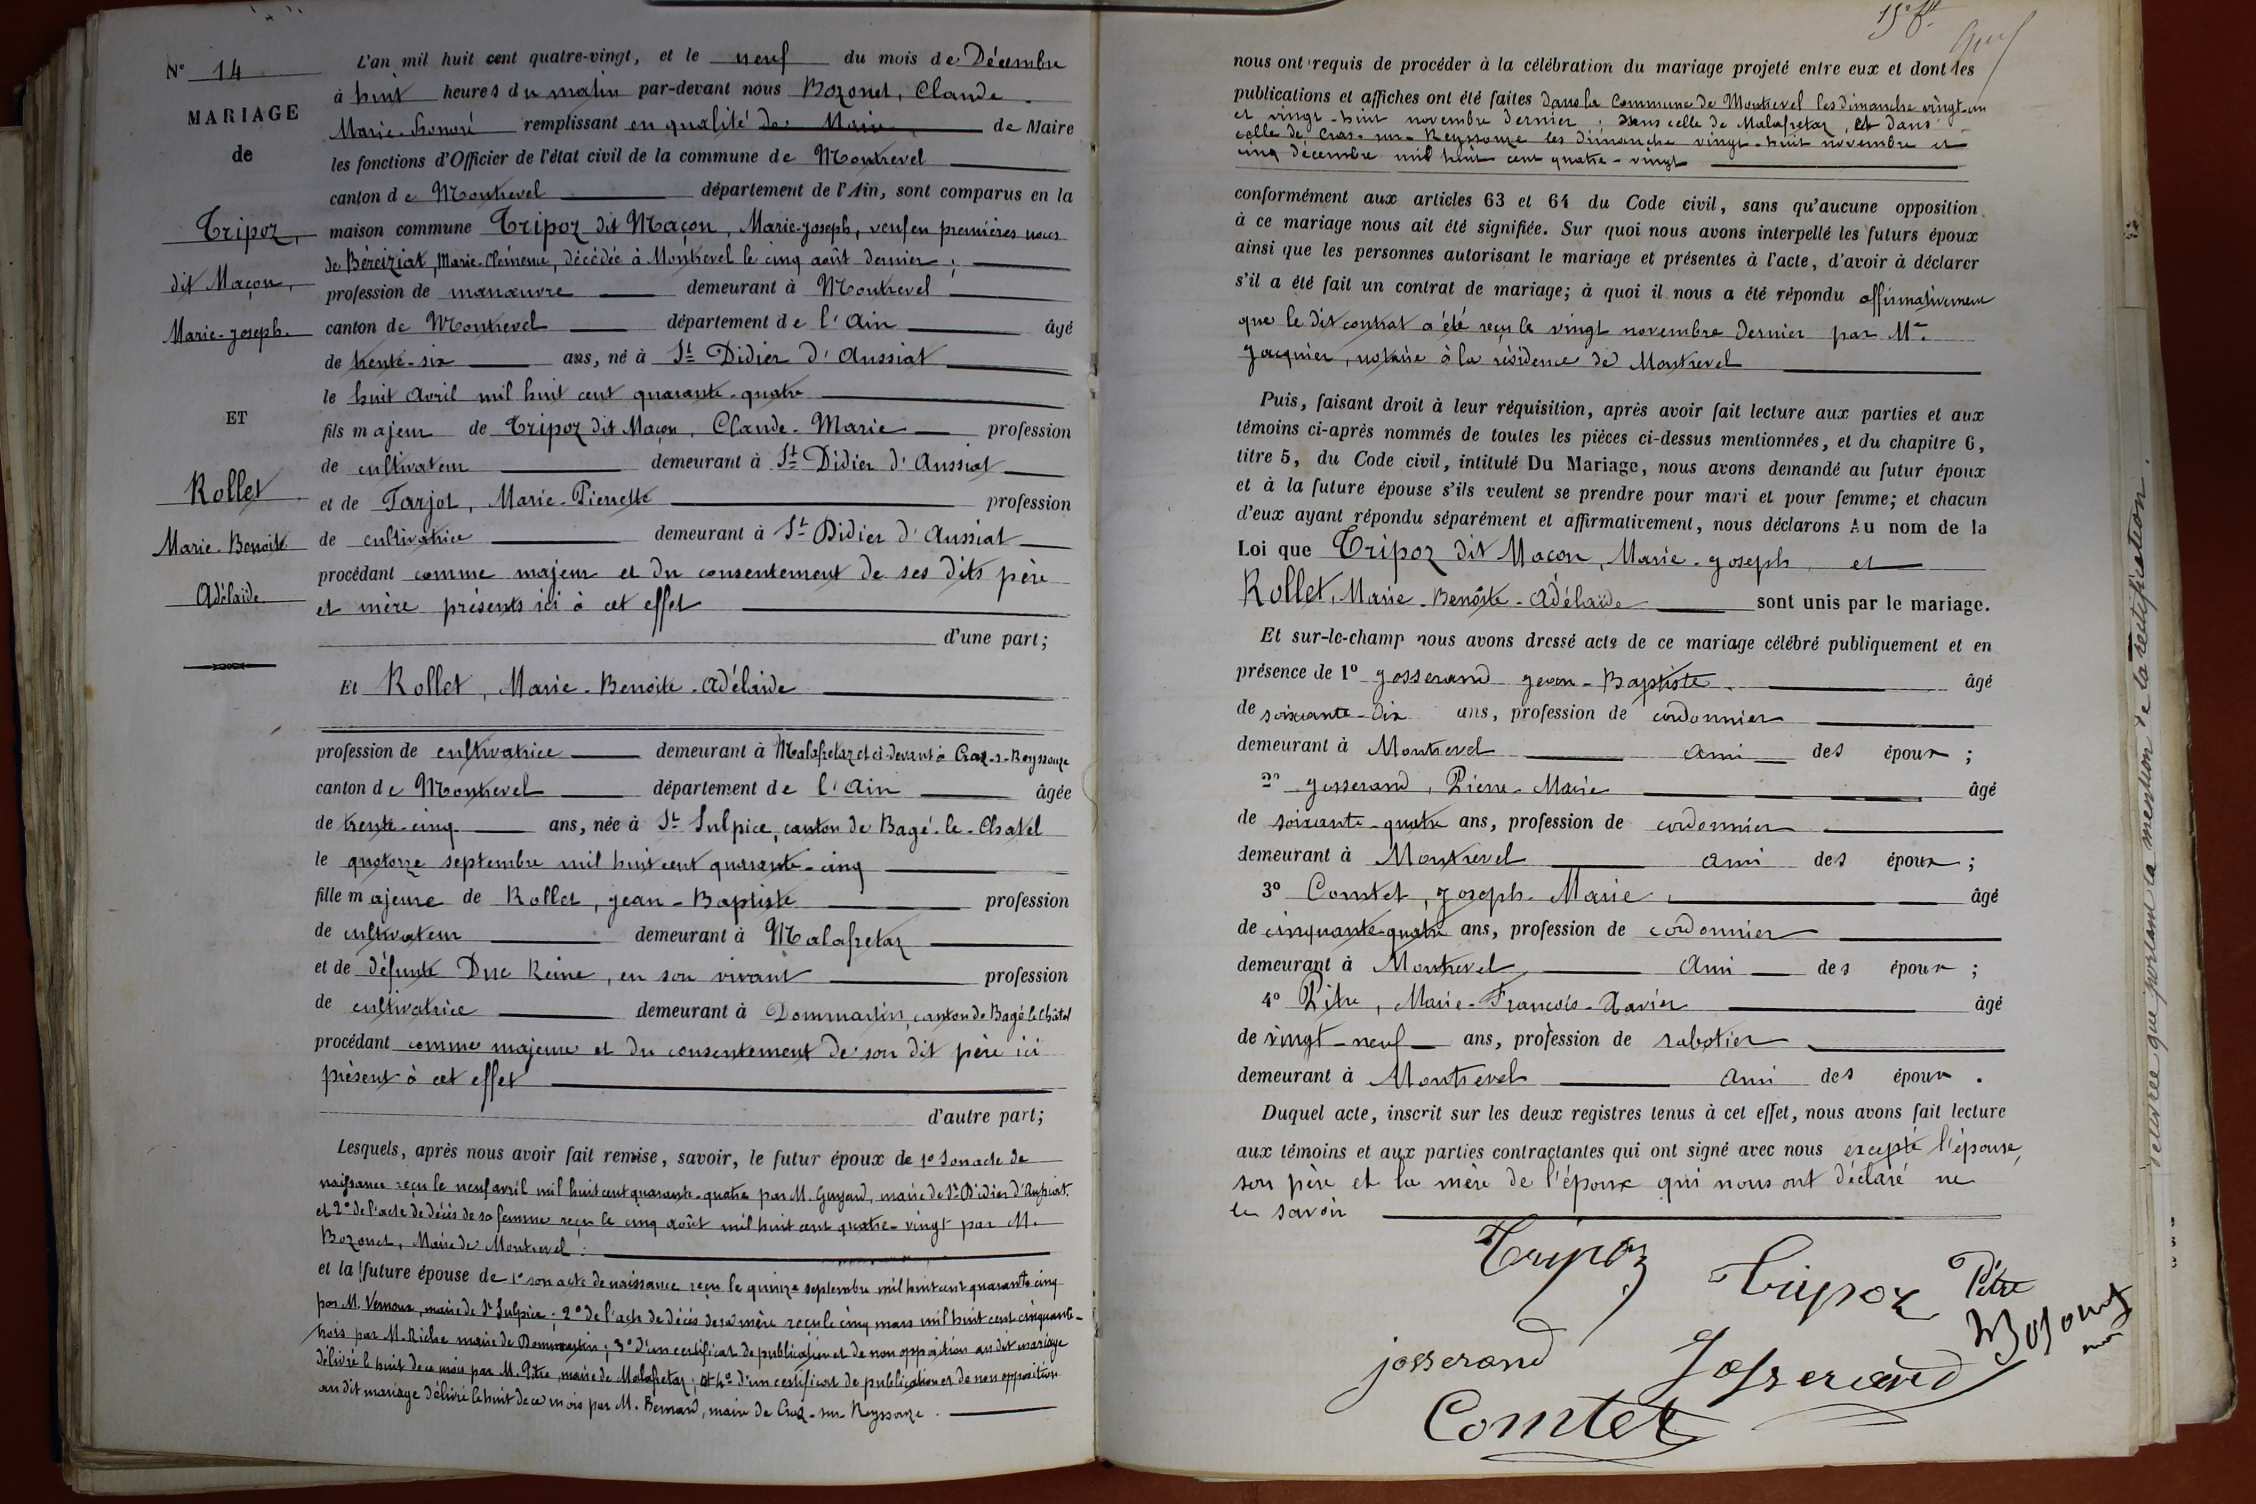 N° 14
MARIAGE
de
Tripoz,
dit Maçon,
Marie-Joseph.
ET
Rollet
Marie-Benoite
Adélaïde
L'an mil huit cent quatre-vingt, et le neuf du mois de Décembre
à huit heures du matin par-devant nous Bozonet, Claude
Marie-honoré remplissant en qualité de Maire de Maire
les fonctions d'Officier de l'état civil de la commune de Montrevel
canton de Montrevel département de l'Ain, sont comparus en la
maison commune Tripoz dit Maçon, Marie-Joseph, veuf en premières noces
de Béreiziat, Marie-Clémence, décédée à Montrevel le cinq août dernier ;
profession de manœuvre demeurant à Montrevel
canton de Montrevel département de l'Ain âgé
de trente-six ans, né à St Didier d'Aussiat
le huit Avril mil huit cent quarante-quatre
fils majeur de Tripoz dit Maçon, Claude-Marie profession
de cultivateur demeurant à St Didier d'Aussiat
et de Tarjot, Marie-Pierrette profession
de cultivatrice demeurant à St Didier d'Aussiat
procédant comme majeur et du consentement de ses dits père
et mère présents ici à cet effet
d'une part;
Et Rollet, Marie-Benoite-Adélaïde
profession de cultivatrice demeurant à Malafretaz et ci-devant à Cras-s-Reyssouze
canton de Montrevel département de l'Ain âgée
de trente-cinq ans, née à St Sulpice, canton de Bagé-le-Chatel
le quatorze septembre mil huit cent quarante-cinq
fille majeure de Rollet, Jean-Baptiste profession
de cultivateur demeurant à Malafretaz
et de défunte Duc Reine, en son vivant profession
de cultivatrice demeurant à Dommartin, canton de Bagé le Châtel
procédant comme majeure et du consentement de son dit père ici
présent à cet effet
d'autre part;
Lesquels, après nous avoir fait remise, savoir, le futur époux de 1° Son acte de
naissance reçu le neuf avril mil huit cent quarante-quatre par M. Guyard, maire de St Didier d'Aussiat.
et 2° de l'acte de décès de sa femme reçu le cinq août mil huit cent quatre-vingt par M.
Bozonet, Maire de Montrevel.
et la future épouse de 1° son acte de naissance reçu le quinze septembre mil huit cent quarante cinq
par M. Vernoux, maire de St Sulpice ; 2° de l'acte de décès de sa mère reçu le cinq mars mil huit cent cinquante-
trois par M. Riche maire de Dommartin ; 3° d'un certificat de publication et de non opposition au dit mariage
délivré le huit de ce mois par M. Pitre, maire de Malafretaz ; et 4° d'un certificat de publication et de non opposition
au dit mariage délivré le huit de ce mois par M. Bernard, maire de Cras-sur-Reyssouze.
nous ont requis de procéder à la célébration du mariage projeté entre eux et dont les
publications et affiches ont été faites dans la Commune de Montrevel les dimanche vingt-un
et vingt-huit novembre dernier, dans celle de Malafretaz, et dans
celle de Cras-sur-Reyssouze les dimanche vingt-huit novembre et
cinq décembre mil huit cent quatre-vingt
conformément aux articles 63 et 64 du Code civil, sans qu'aucune opposition
à ce mariage nous ait été signifiée. Sur quoi nous avons interpellé les futurs époux
ainsi que les personnes autorisant le mariage et présentes à l'acte, d'avoir à déclarer
s'il a été fait un contrat de mariage; à quoi il nous a été répondu affirmativement
que le dit contrat a été reçu le vingt novembre dernier par Me
Jacquier, notaire à la résidence de Montrevel
Puis, faisant droit à leur réquisition, après avoir fait lecture aux parties et aux
témoins ci-après nommés de toutes les pièces ci-dessus mentionnées, et du chapitre 6,
titre 5, du Code civil, intitulé Du Mariage, nous avons demandé au futur époux
et à la future épouse s'ils veulent se prendre pour mari et pour femme; et chacun
d'eux ayant répondu séparément et affirmativement, nous déclarons Au nom de la
Loi que Tripoz dit Maçon, Marie-Joseph et
Rollet, Marie-Benoîte-Adélaïde sont unis par le mariage.
Et sur-le-champ nous avons dressé acte de ce mariage célébré publiquement et en
présence de 1° Josserand Jean-Baptiste âgé
de soixante-dix ans, profession de cordonnier
demeurant à Montrevel ami des époux ;
2° Josserand, Pierre-Marie âgé
de soixante-quatre ans, profession de cordonnier
demeurant à Montrevel ami des époux ;
3° Comtet, Joseph-Marie, âgé
de cinquante-quatre ans, profession de cordonnier
demeurant à Montrevel, Ami des époux ;
4° Pitre, Marie-François-Xavier âgé
de vingt-neuf ans, profession de sabotier
demeurant à Montrevel Ami des époux.
Duquel acte, inscrit sur les deux registres tenus à cet effet, nous avons fait lecture
aux témoins et aux parties contractantes qui ont signé avec nous excepté l'épouse,
son père et la mère de l'époux qui nous ont déclaré ne
le savoir
Tripoz Tripoz Pitre
Josserand Josserand Bozonet
Comtet
que portant la mention de la rectification.